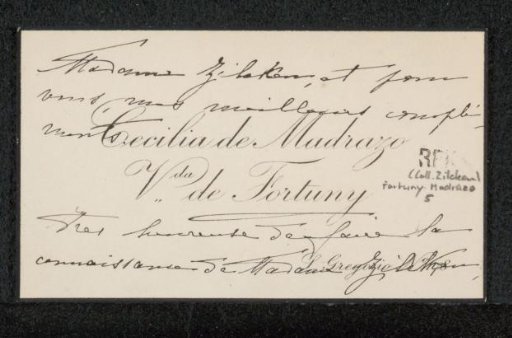 Madame Zilcken, et pour
vous, mes meilleures complé-
ments
Cecilia de Madrazo
Vda de Fortuny
(Coll. Zilcken)
Fortuny Madrazo
5
Très heureuse de faire la
connaissance de Madame Zilcken,